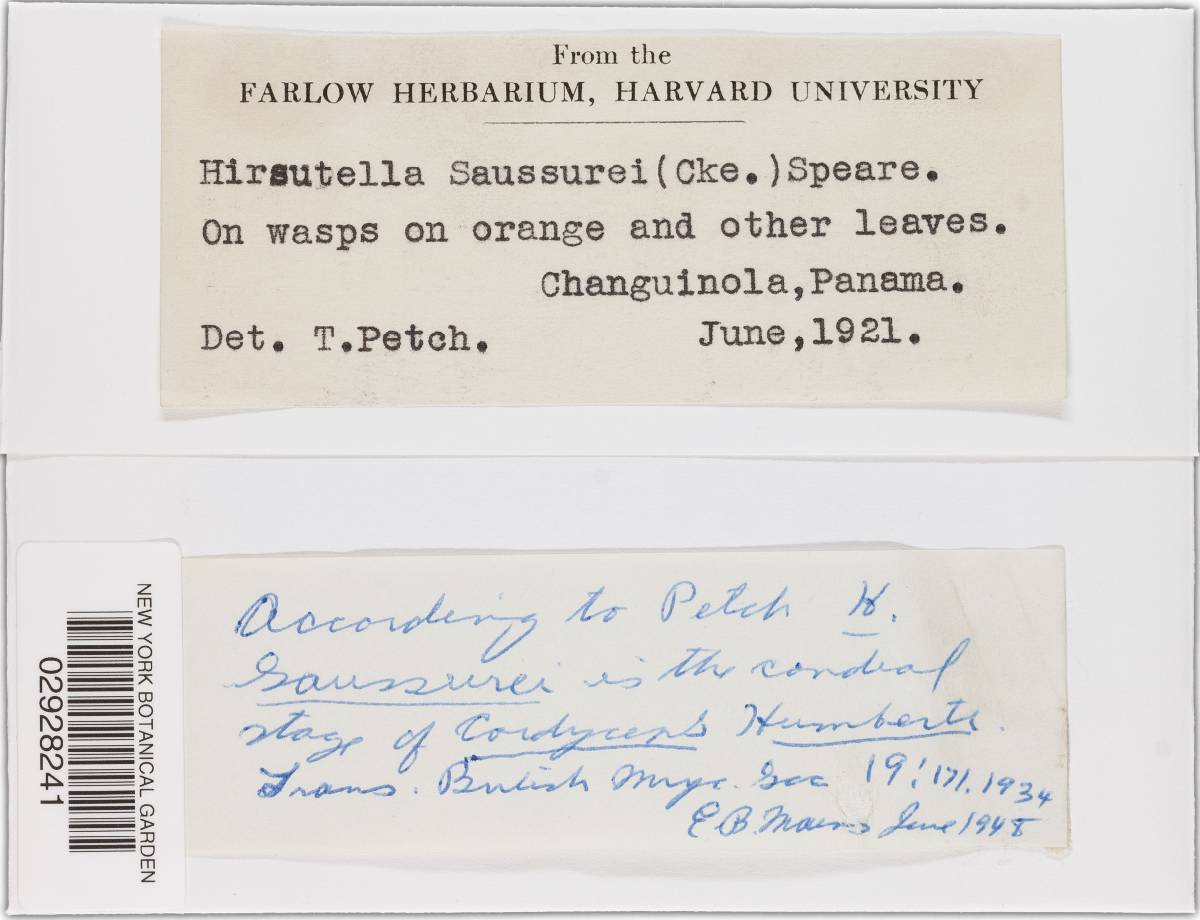 From the
FARLOW HERBARIUM, HARVARD UNIVERSITY
Hirsutella Saussurei(Cke.)Speare.
On wasps on orange and other leaves.
Changuinola,Panama.
Det. T.Petch. June,1921.
According to Petch H.
Saussurei is the conidial
stage of Cordyceps Humberti.
Trans. British Myc. Soc 19:171.1934
E B Mains June 1948
NEW YORK BOTANICAL GARDEN
02928241